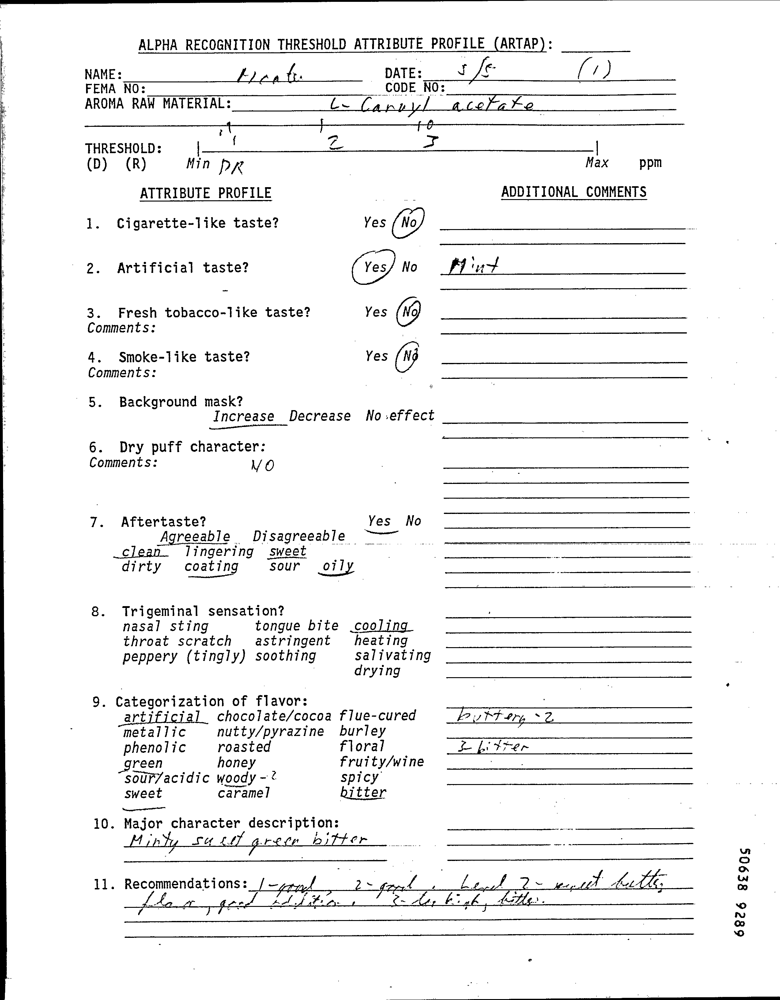 ALPHA RECOGNITION THRESHOLD ATTRIBUTE PROFILE (ARTAP):
NAME: DATE: 5/5 (1)
FEMA NO: CODE NO:
AROMA RAW MATERIAL: L- Carvyl acetate
.1 1 10
THRESHOLD: 1 2 3
(D) (R) Min DR Max ppm
ATTRIBUTE PROFILE ADDITIONAL COMMENTS
1. Cigarette-like taste? Yes No
2. Artificial taste? Yes No Mint
3. Fresh tobacco-like taste? Yes No
Comments:
4. Smoke-like taste? Yes No
Comments:
5. Background mask?
Increase Decrease No effect
6. Dry puff character:
Comments: NO
7. Aftertaste? Yes No
Agreeable Disagreeable
clean lingering sweet
dirty coating sour oily
8. Trigeminal sensation?
nasal sting tongue bite cooling
throat scratch astringent heating
peppery (tingly) soothing salivating
drying
9. Categorization of flavor:
artificial chocolate/cocoa flue-cured buttery - 2
metallic nutty/pyrazine burley
phenolic roasted floral 3 bitter
green honey fruity/wine
sour/acidic woody - 2 spicy
sweet caramel bitter
10. Major character description:
Minty sweet green bitter
11. Recommendations: 1-good 2-good. Level 2- sweet
good addition. 3- high,
50638 9289